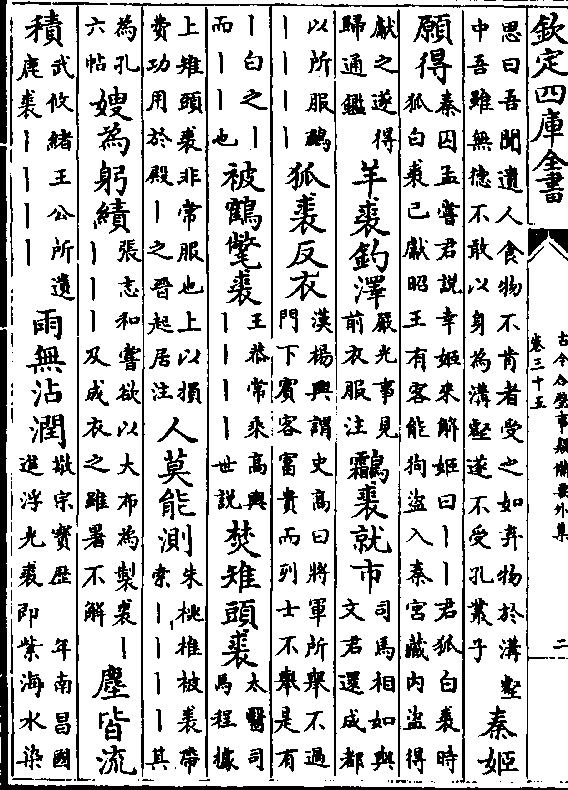 欽定四庫全書
古今合璧事類備要外集
卷三十五
二
思曰吾聞遺人食物不肯者受之如弃物於溝壑
中吾雖無徳不敢以身為溝壑遂不受孔叢子
秦姬
願得
秦囚孟嘗君説幸姬求解姬曰丨丨君狐白裘時
狐白裘已獻昭王有客能狗盗入秦宮藏内盗得
獻之遂得
歸通鑑
羊裘釣澤
嚴光事見
前衣服注
鸘裘就市
司馬相如與
文君還成都
以所服鷫
丨丨丨丨
狐裘反衣
漢楊興謂史高曰將軍所舉不過
門下賓客富貴而列士不舉是有
丨白之丨
而丨丨也
被鶴氅裘
王恭常乘高輿
丨丨丨丨世説
焚雉頭裘
太醫司
馬程據
上雉頭裘非常服也上以損
費功用於殿丨之晉起居注
人莫能測
朱桃椎被裘帶
索丨丨丨丨其
為孔
六帖
嫂為躬績
張志和嘗欲以大布為製裘丨
丨丨丨及成衣之雖暑不解
塵皆流
積
武攸緒王公所遺
鹿裘丨丨丨丨
雨無沾潤
敬宗寳歴年南昌國
進浮光裘即紫海水染